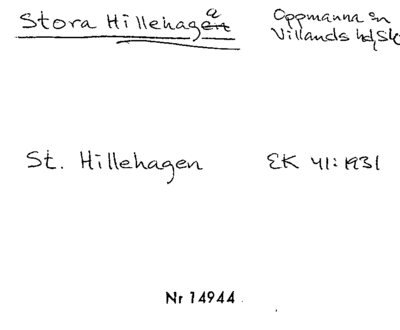 Stora Hillehaga
Oppmanna sn
Villands hd, Sk
St. Hillehagen
EK 41:1931
Nr 14944